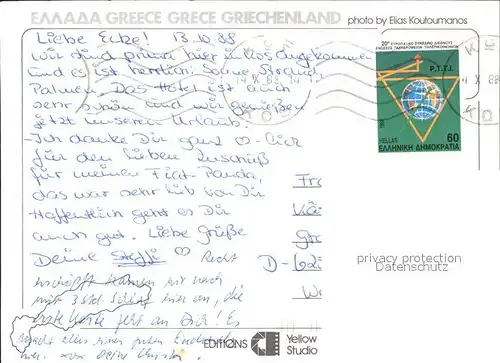 ΕΛΛΑΔΑ GREECE GRECE GRIECHENLAND
photo by Elias Koutoumanos
Liebe Ecke! 13.10.88
Wir sind prima hier in Kos angekommen
und es ist herrlich, Sonne, Strand,
Palmen. Das Hotel ist auch
sehr schön und wir genießen
jetzt unseren Urlaub.
-Ich danke Dir ganz ♡-lich
für den lieben Zuschuß
für meinen Fiat-Panda,
das war sehr lieb von Dir
Hoffentlich geht es Dir
auch gut. Liebe Grüße
Deine Steffi ♡ Recht
erschöpft kamen wir nach
mit 3 Std. Schlaf hier an, die
erste Karte geht an Dich! Es
nicht alles einen guten
20º ΕΥΡΩΠΑΪΚΟ ΣΥΝΕΔΡΙΟ ΔΙΕΘΝΟΥΣ
ΕΝΩΣΕΩΣ ΤΑΧΥΔΡΟΜΕΙΩΝ ΤΗΛΕΠΙΚΟΙΝΩΝΙΩΝ
P.T.T.I.
HELLAS 60
ΕΛΛΗΝΙΚΗ ΔΗΜΟΚΡΑΤΙΑ
X 88
Fr
D-62
privacy protection
Datenschutz
EDITIONS Yellow
Studio